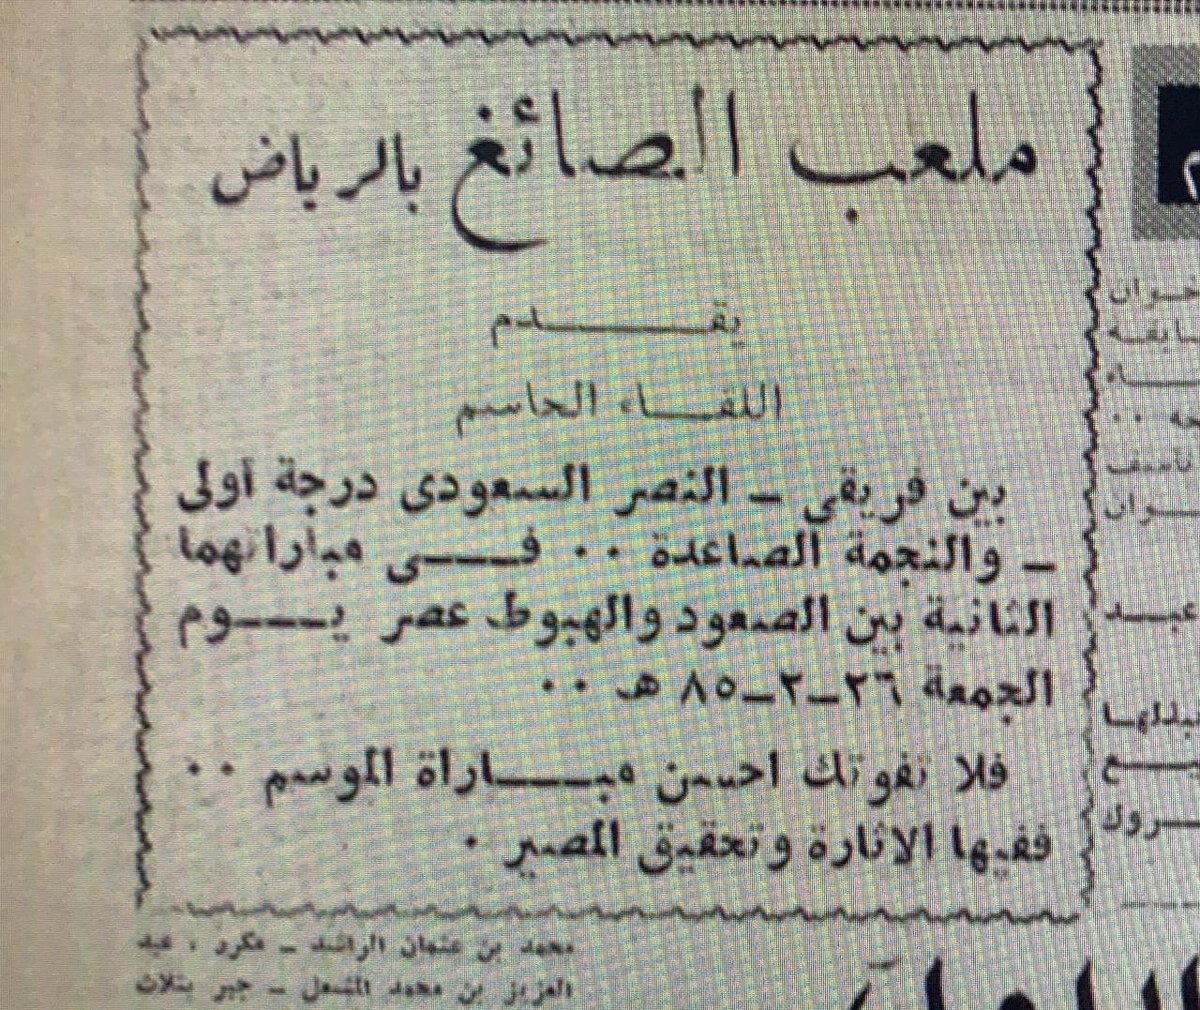 ملعب الصائغ بالرياض
يقـــــدم
اللقـــاء الحاسم
بين فريقي ـ النصر السعودى درجة أولى
ـ والنجمة الصاعدة ٠٠ فــــي مباراتهما
الثانية بين الصعود والهبوط عصر يـــوم
الجمعة ٢٦ـ٢ـ٨٥ هـ ٠٠
فلا تفوتك احسن مبـــاراة الموسم ٠٠
ففيها الاثارة وتحقيق المصير ٠
محمد بن عثمان الراشد ـ مكرر ، عبد
العزيز بن محمد المشعل ـ جبر بثلاث